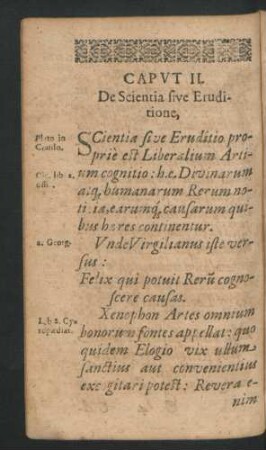 CAPVT II.
De Scientia sive Erudi-
tione,
Plato in
Cratilo.
SCientia sive Eruditio pro-
prie est Liberalium Arti-
um cognitio: h.e. Divinarum
Cic. lib. 2.
offi.
atq, humanarum Rerum, no-
titia, earunq, causarum qui-
bus hæ res continentur.
2. Georg.
Vnde Virgilianus iste ver-
sus:
Felix qui potuit Rerũ cogno-
scere causas.
Xenophon Artes omnium
Lib 2. Cy-
ropædias.
bonorum fontes appellat: quo
quidem Elogio vix ullum
sanctius aut convenientius
excogitari potest: Revera e-
nim